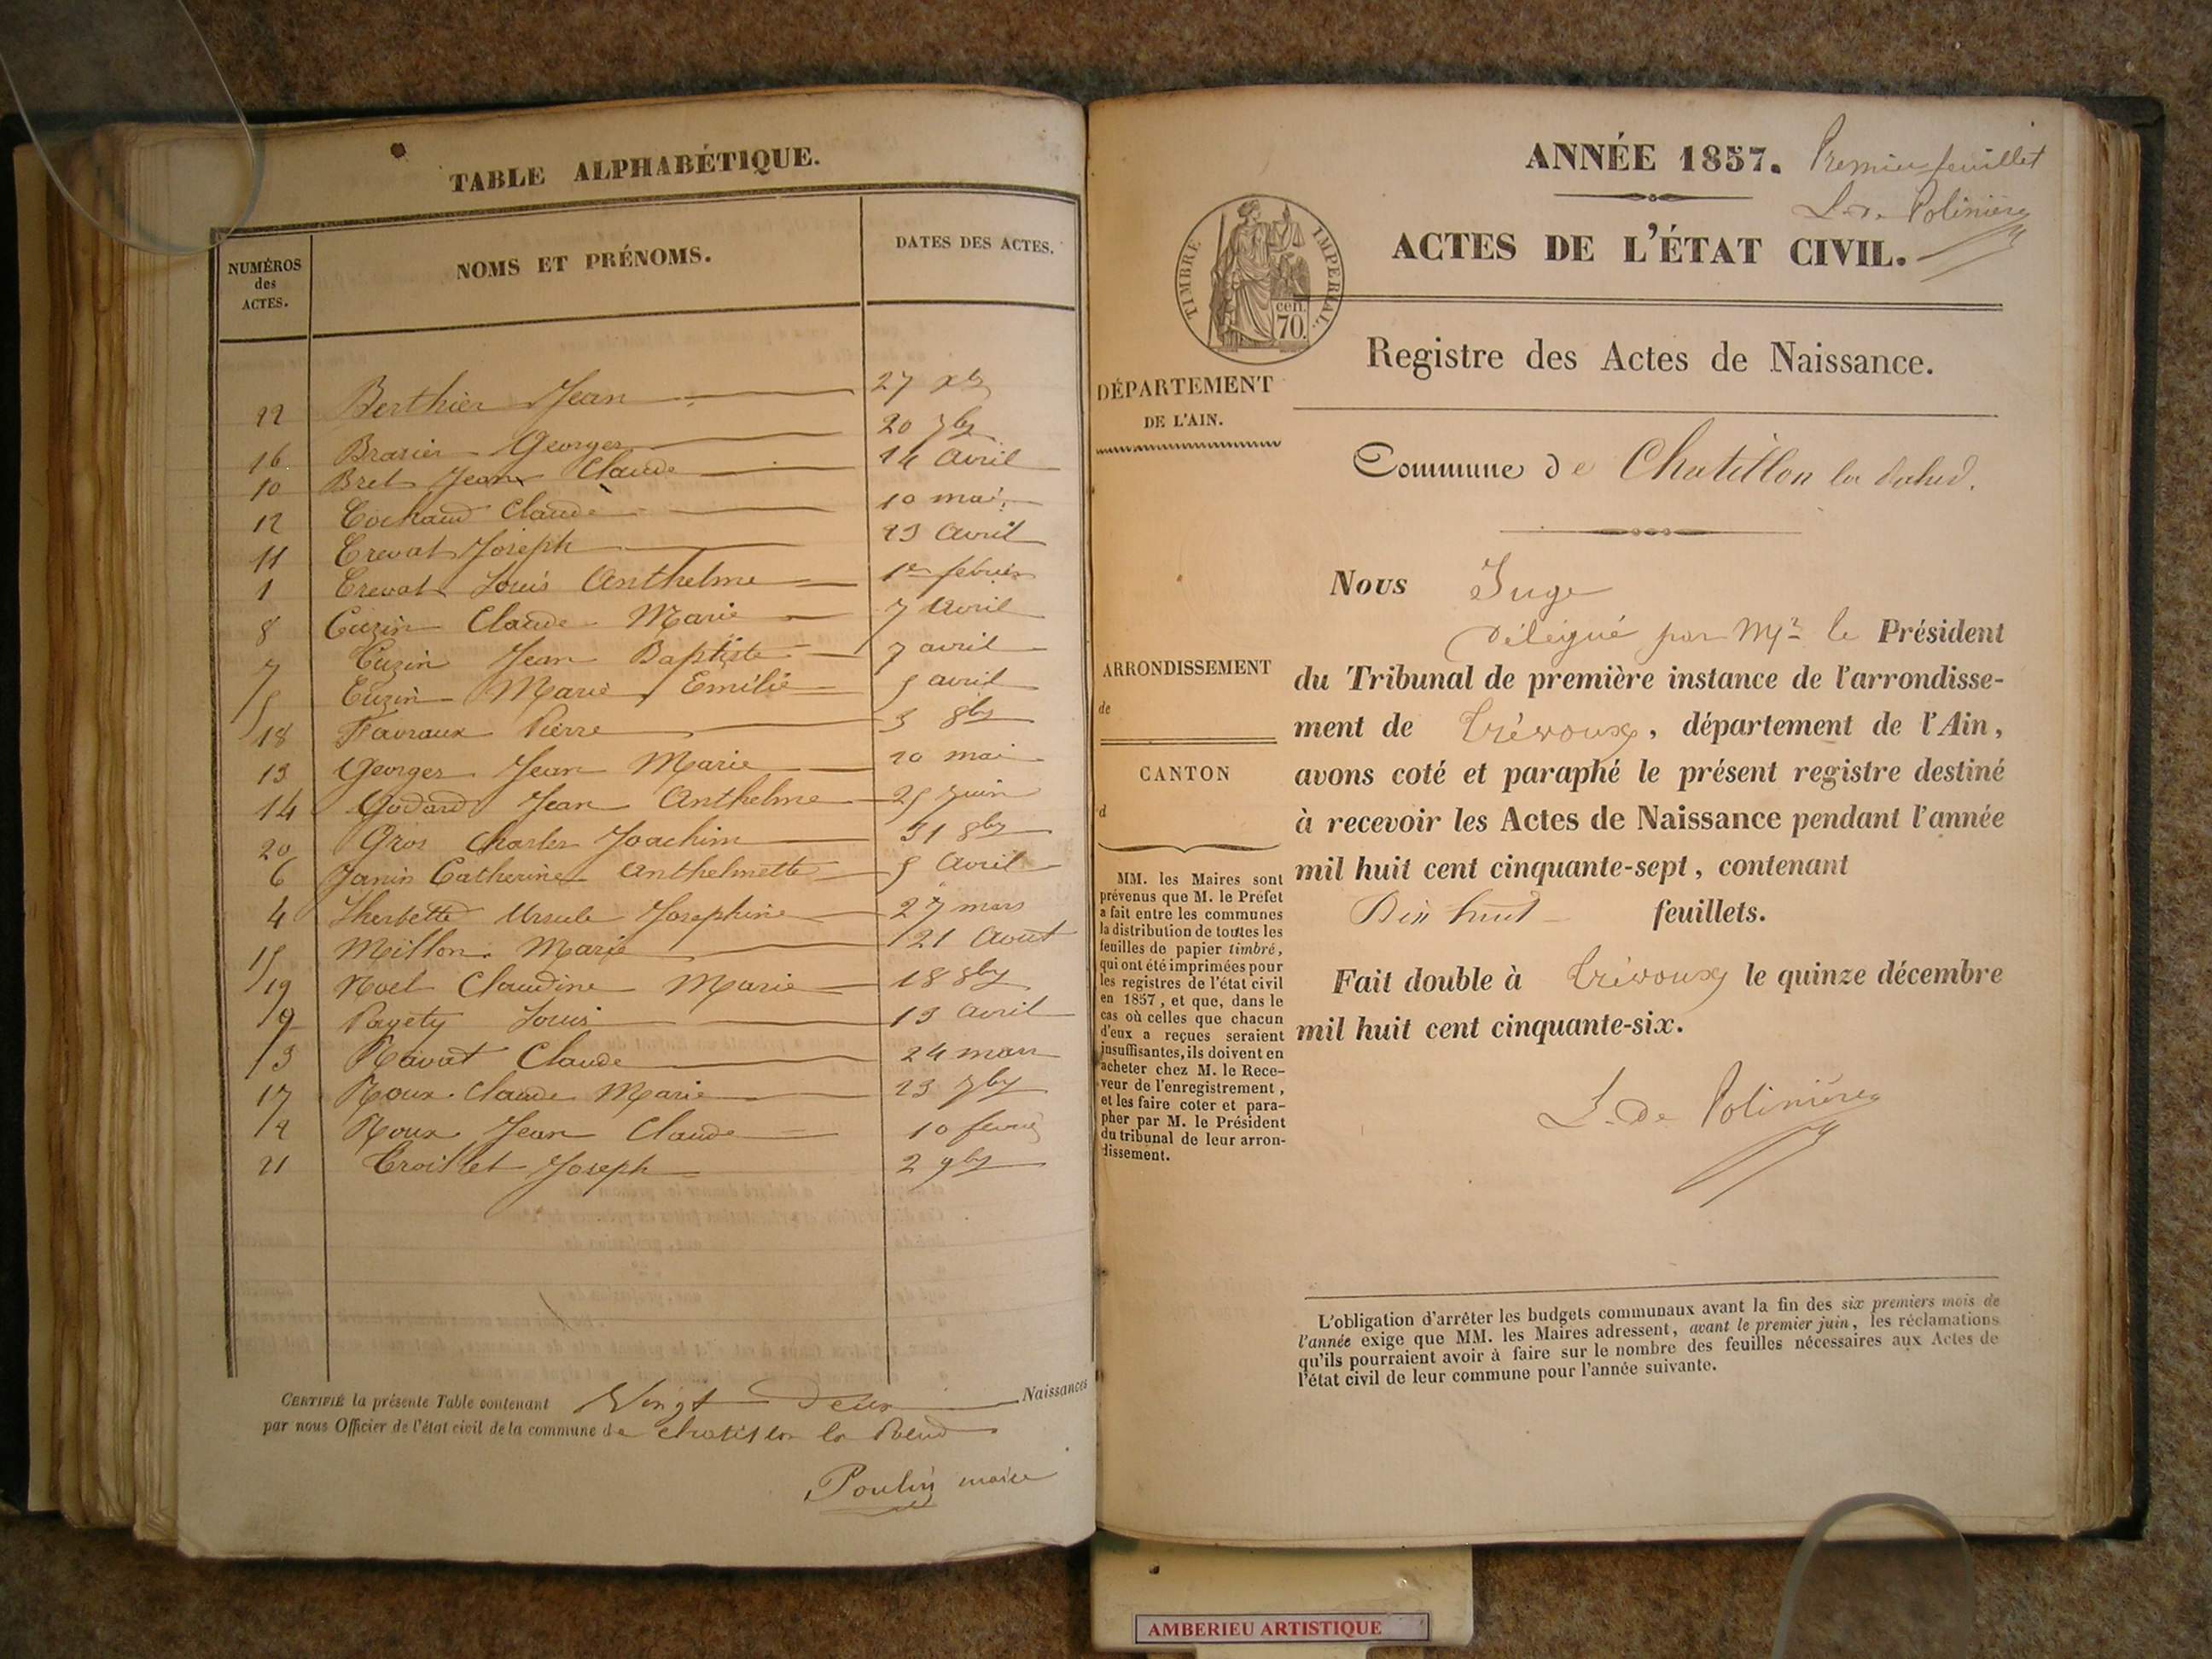 TABLE ALPHABÉTIQUE.
NUMÉROS des ACTES. NOMS ET PRÉNOMS. DATES DES ACTES.
22 Berthier Jean 27 xb
20 7by
16 Brasier Georges
10 Bret Jean Claude 14 avril
12 Cochaud Claude 10 mai
11 Crevat Joseph 23 avril
1 Crevat Louis Anthelme 1er
8 Cuzin Claude Marie 7 avril
7 Cuzin Jean Baptiste 7 avril
5 Cuzin Marie Emélie 5 avril
18 Favraux Pierre 3 8by
13 Georges Jean Marie 20 mai
14 Godard Jean Anthelme 25 juin
20 Gros Charles Joachim 31 8by
6 Janin Catherine Anthelmette 5 avril
4 Lherbette Ursule Josephine 27 mars
15 Millon Marie 21 Aout
19 Noel Claudine Marie 18 8by
9 Pagety Louis 13 avril
3 Ravat Claude 24 mars
17 Roux Claude Marie 23 7by
2 Roux Jean Claude 10
21 Troillet Joseph 2 9by
CERTIFIÉ la présente Table contenant Vingt Deux Naissances
par nous Officier de l'état civil de la commune de Chatillon la
Poulin maire
ANNÉE 1857. Premier feuillet
L. De Polinière
ACTES DE L'ÉTAT CIVIL.
TIMBRE IMPERIAL.
cen. 70.
Registre des Actes de Naissance.
DÉPARTEMENT
DE L'AIN.
Commune de Chatillon la
Nous Juge
Délégué par Mr le Président
du Tribunal de première instance de l'arrondisse-
ment de Trévoux, département de l'Ain,
avons coté et paraphé le présent registre destiné
à recevoir les Actes de Naissance pendant l'année
mil huit cent cinquante-sept, contenant
Dix huit feuillets.
Fait double à Trévoux le quinze décembre
mil huit cent cinquante-six.
L. De Polinière
ARRONDISSEMENT
de
CANTON
d
MM. les Maires sont
prévenus que M. le Préfet
a fait entre les communes
la distribution de toutes les
feuilles de papier timbré,
qui ont été imprimées pour
les registres de l'état civil
en 1857, et que, dans le
cas où celles que chacun
d'eux a reçues seraient
insuffisantes, ils doivent en
acheter chez M. le Rece-
veur de l'enregistrement,
et les faire coter et para-
pher par M. le Président
du tribunal de leur arron-
dissement.
L'obligation d'arrêter les budgets communaux avant la fin des six premiers mois de
l'année exige que MM. les Maires adressent, avant le premier juin, les réclamations
qu'ils pourraient avoir à faire sur le nombre des feuilles nécessaires aux Actes de
l'état civil de leur commune pour l'année suivante.
AMBERIEU ARTISTIQUE